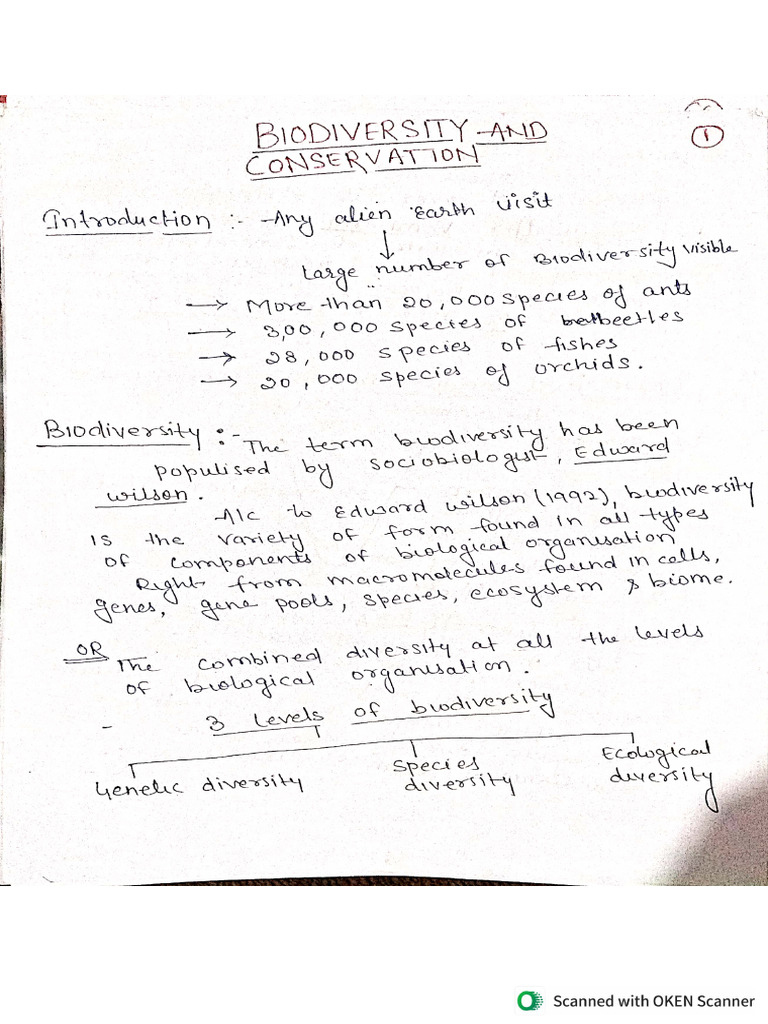 BIODIVERSITY AND
CONSERVATION
1
Introduction :- Any alien Earth visit
Large number of Biodiversity visible
→ More than 20,000 species of ants
→ 3,00,000 species of beetles
→ 28,000 species of fishes
→ 20,000 species of orchids.
Biodiversity :- The term biodiversity has been
populised by sociobiologist, Edward
wilson.
A/c to Edward wilson (1992), biodiversity
is the variety of form found in all types
of components of biological organisation
Right from macromolecules found in cells,
genes, gene pools, species, ecosystem & biome.
OR The combined diversity at all the levels
of biological organisation.
- 3 levels of biodiversity
Genetic diversity Species diversity Ecological diversity
Scanned with OKEN Scanner